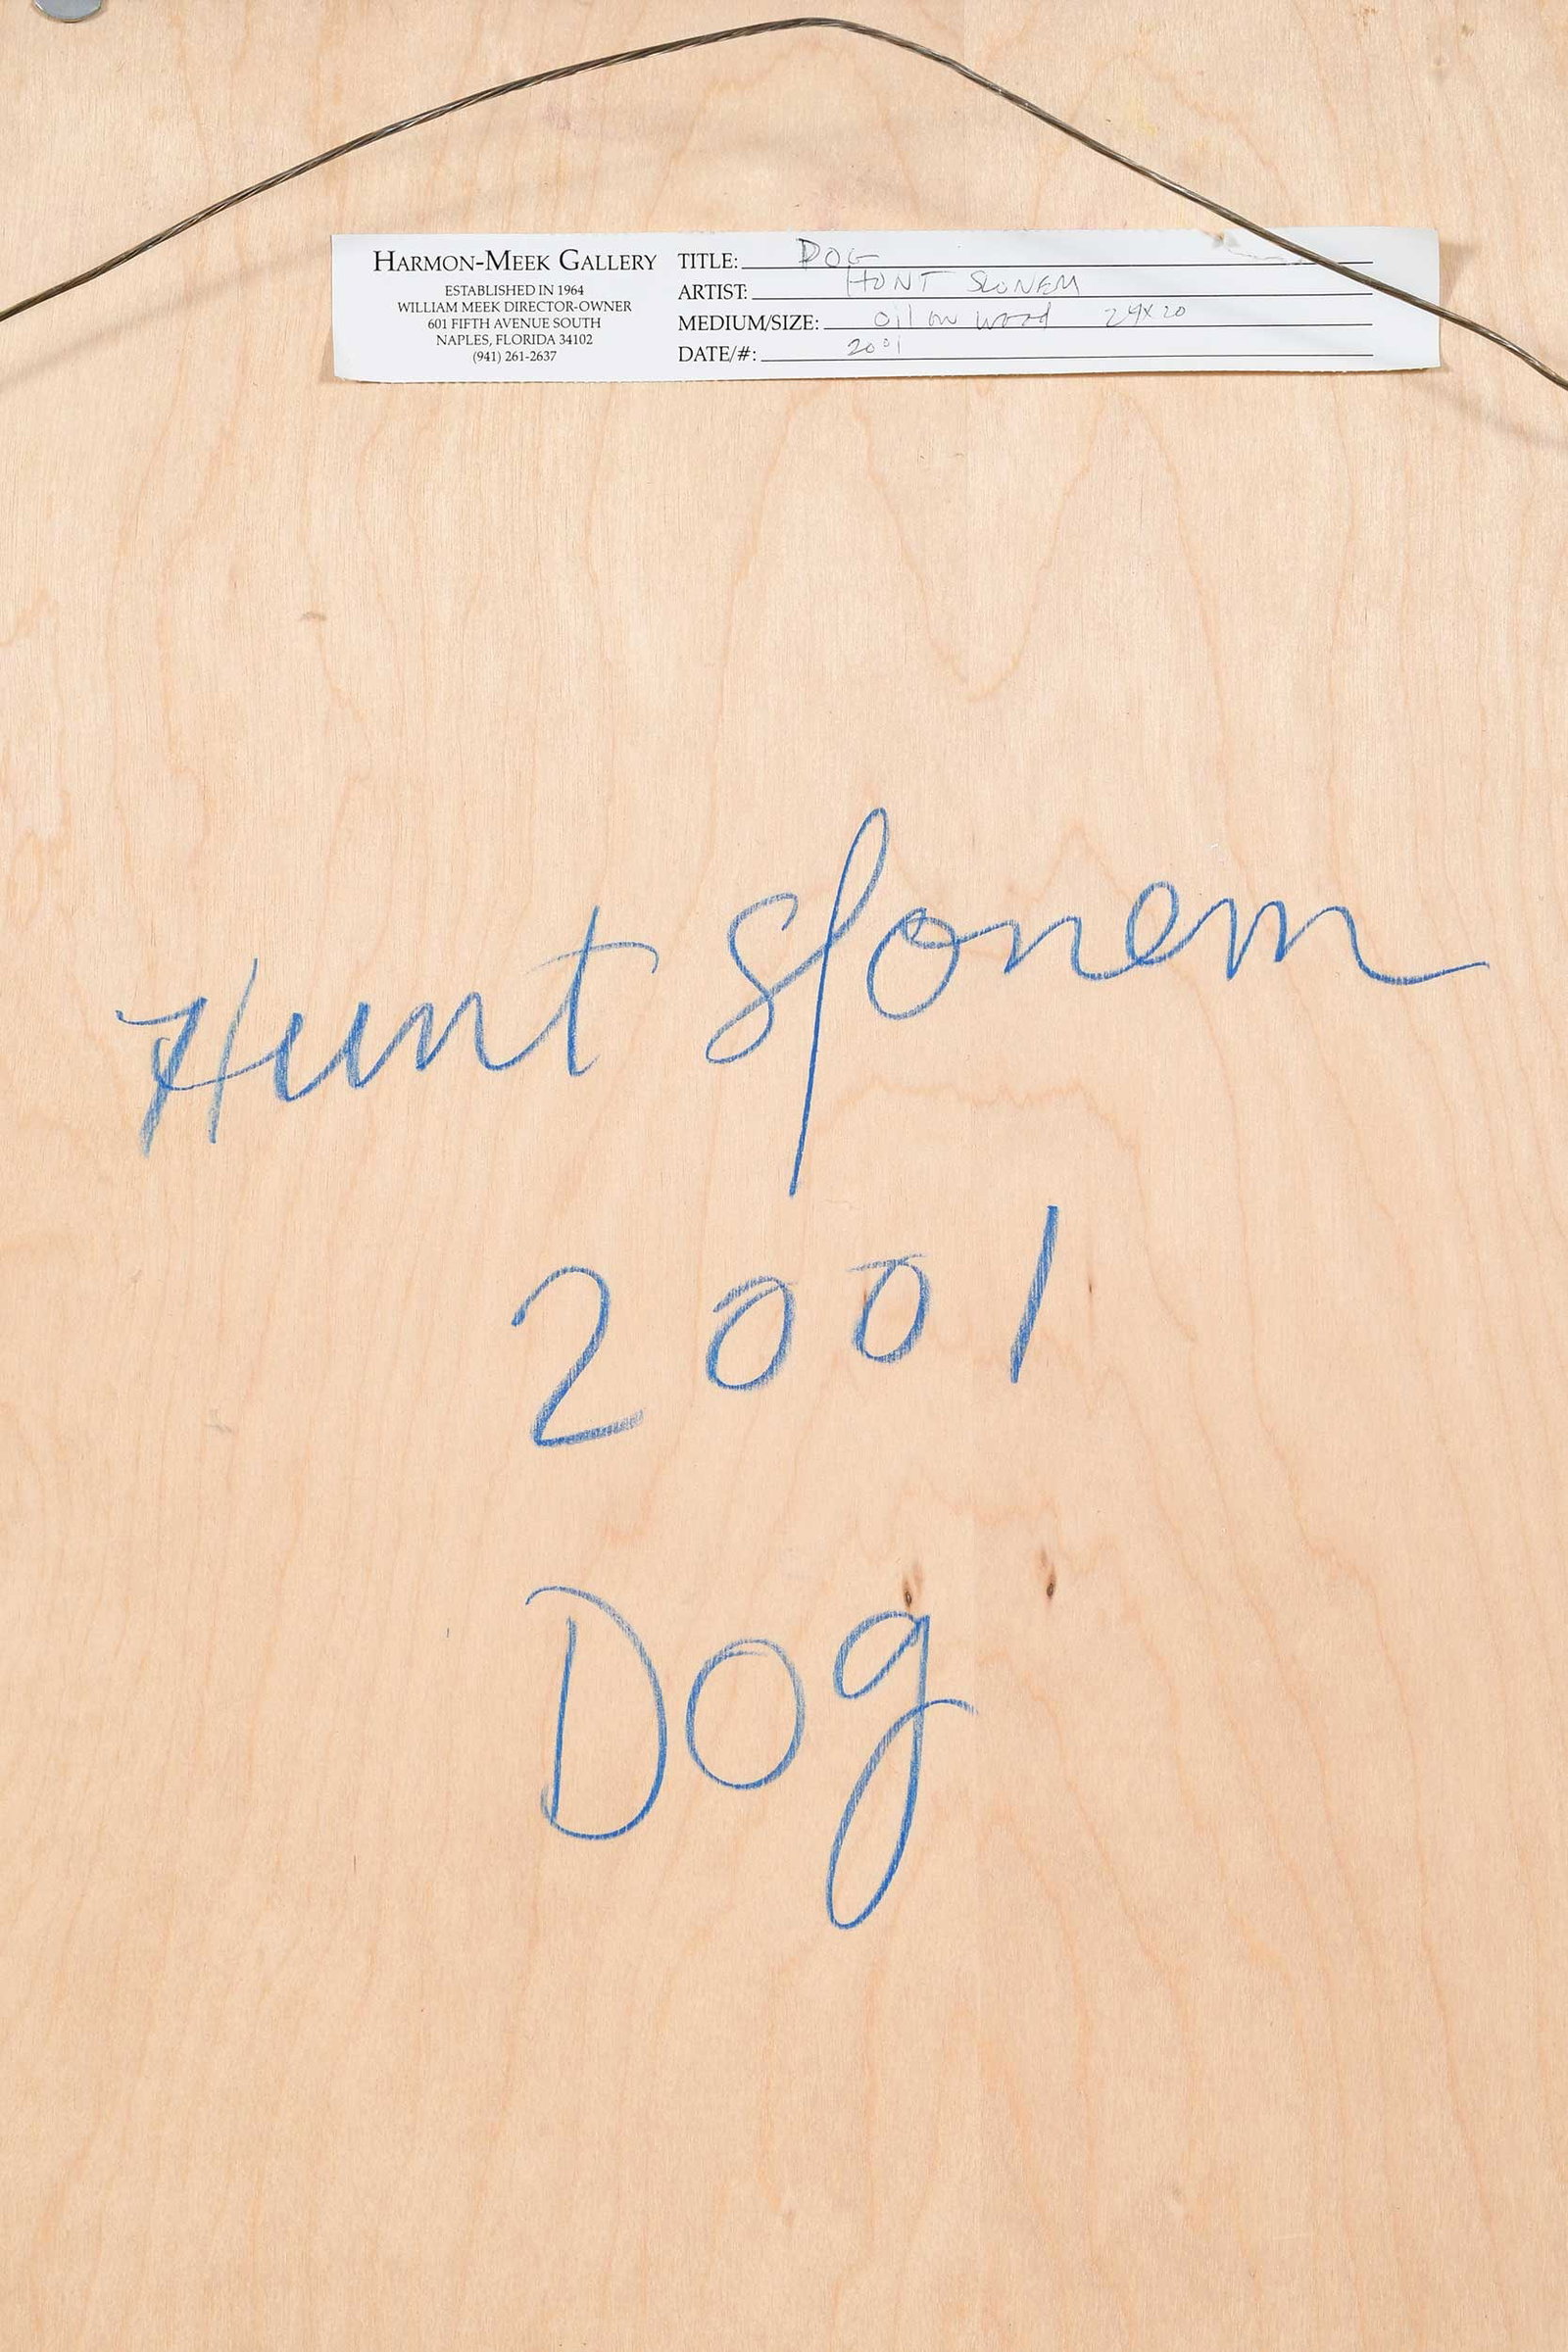 HARMON-MEEK GALLERY
ESTABLISHED IN 1964
WILLIAM MEEK DIRECTOR-OWNER
601 FIFTH AVENUE SOUTH
NAPLES, FLORIDA 34102
(941) 261-2637
TITLE: DOG
ARTIST: HUNT SLONEM
MEDIUM/SIZE: oil on wood 24x20
DATE/#: 2001
Hunt Slonem
2001
Dog